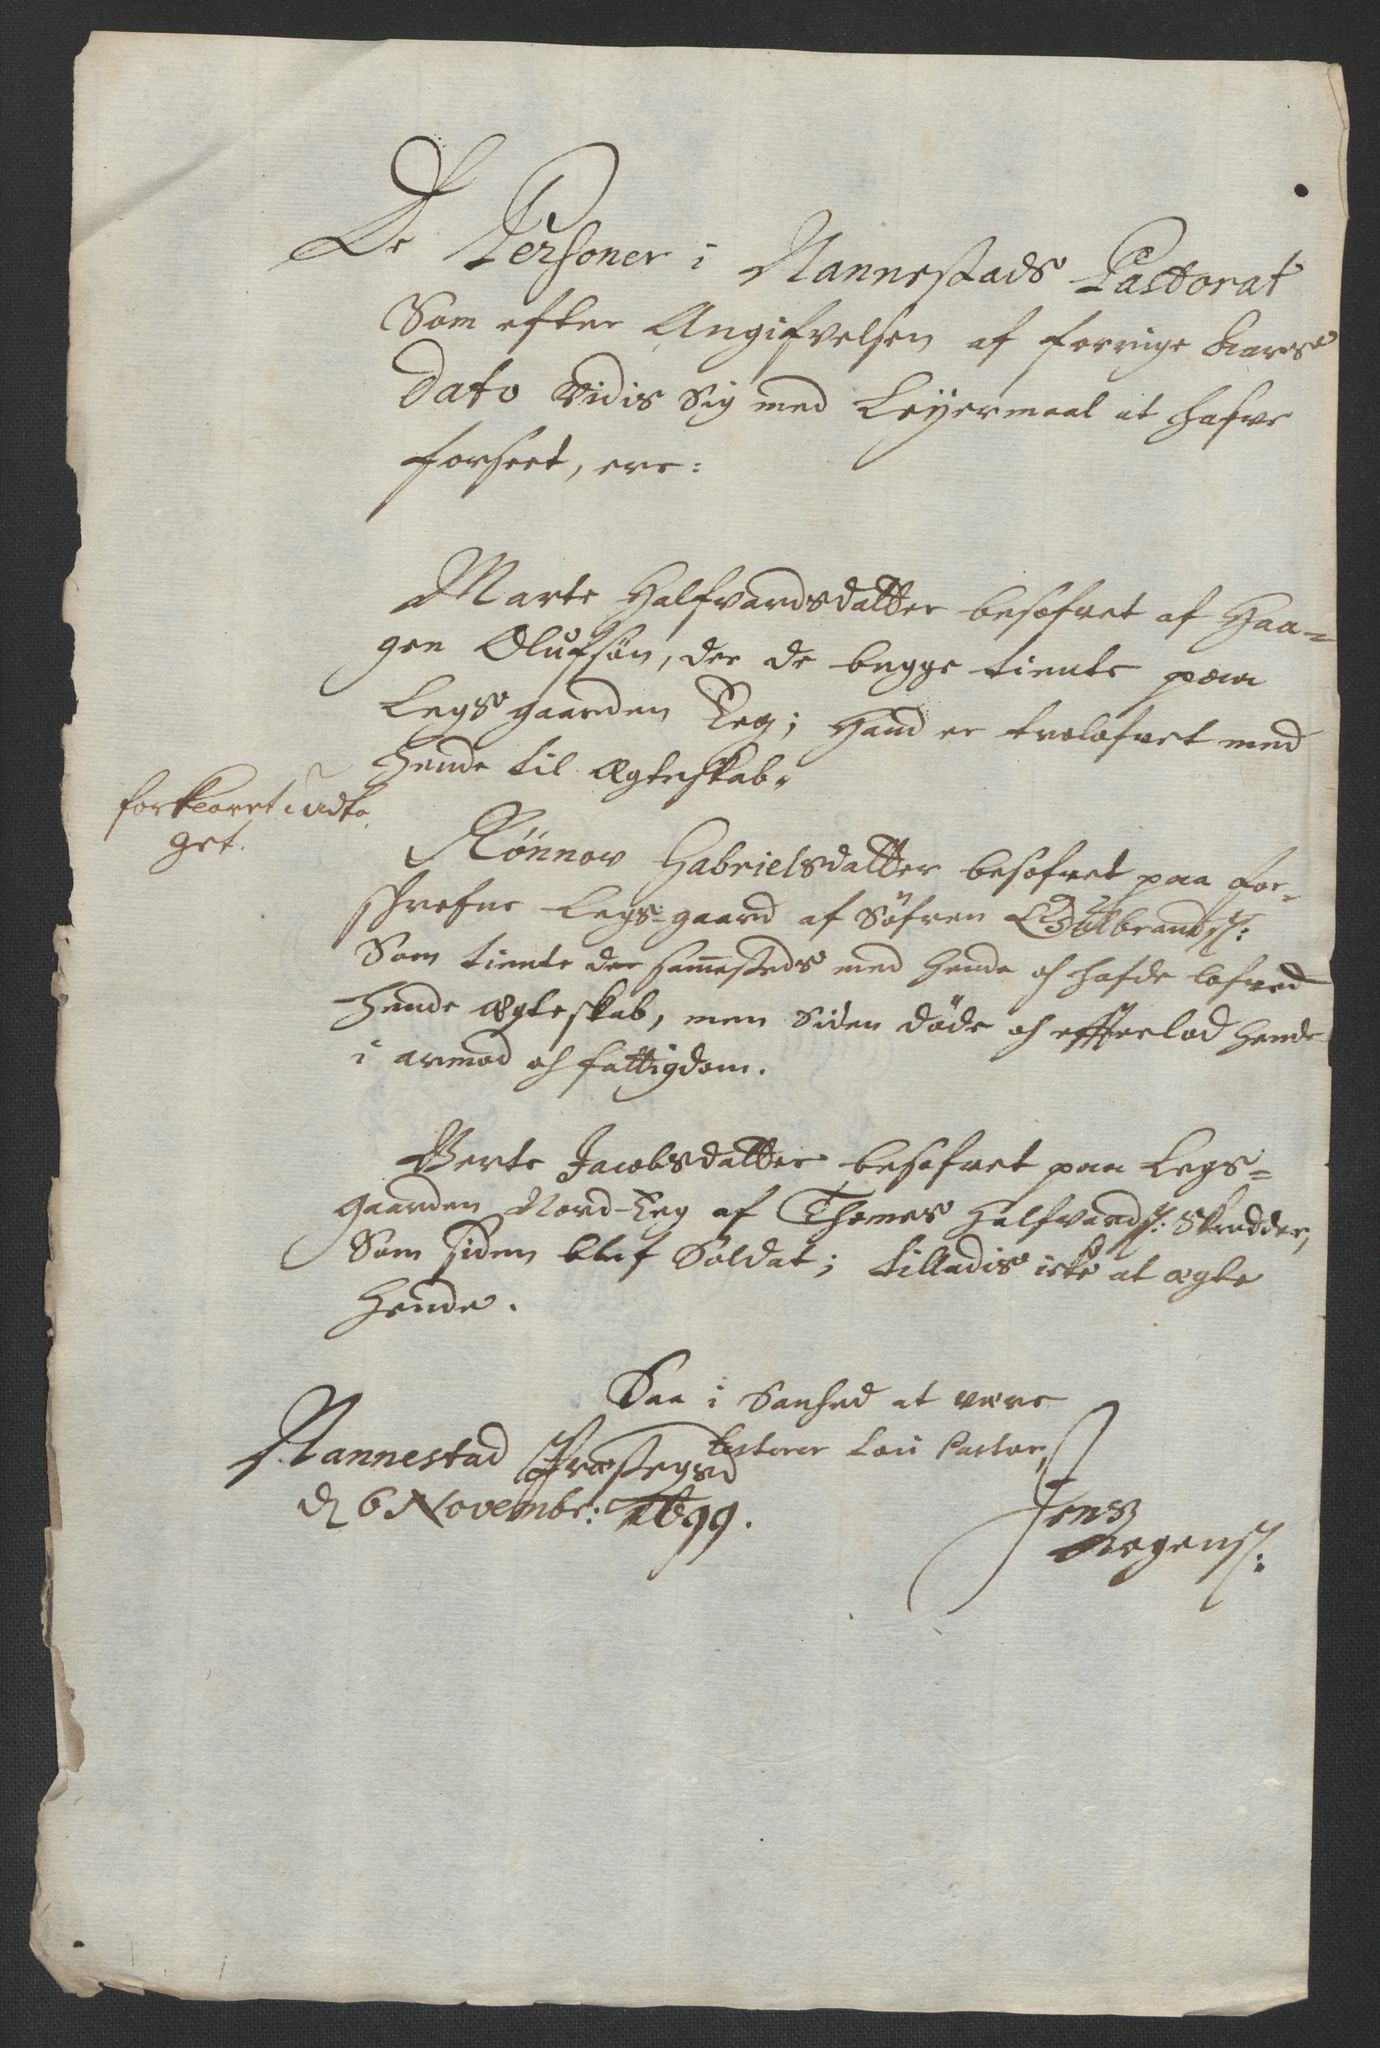 De Personer i Nannestads Pastorat
Som efter Angifvelsen af forrige Aars
dato vidis Sig med Leyermaal at hafve
forseet, ere:
Marte Halfvardsdatter besofvet af Haa=
gen Olufsøn, der de begge tiente paa
Legsgaarden Teg; Hand er trolofvet med
hende til ægteskab.
forklaret i Udto
get.
Rønnov Gabrielsdatter besofvet paa for-
schrefne Legs-gaard af Søfren Gulbrands:
Som tiente der sammesteds med hende oh hafde lofved
hende ægteskab, men Siden døde oh efterlod hende
i armod oh fattigdom.
Berte Jacobsdatter besofvet paa Legs=
gaarden Nord-Teg af Thomes Halfvards: Skrædder,
Som siden blef Soldat; tilladis icke at ægte
hende.
Saa i Sanhed at være
testerer loci Pastor,
Nannestad Præstegrd
d 6 Novembr: 1699.
Jens
Mogens: